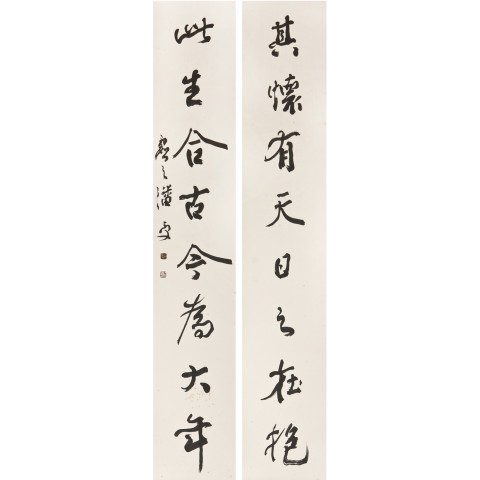 其懷有天日之在抱
此生合古今為大年
虛之潘受